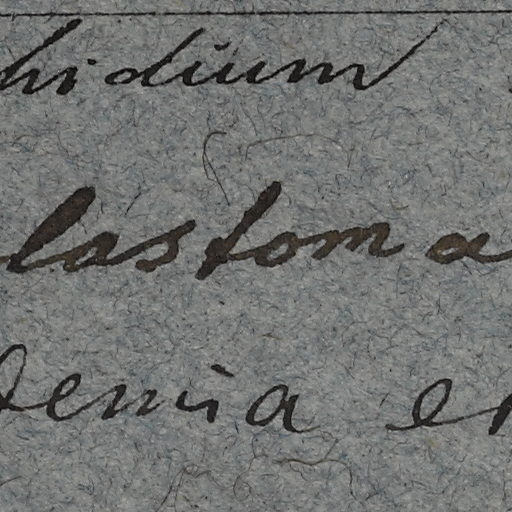 hidium
lastoma
demia er